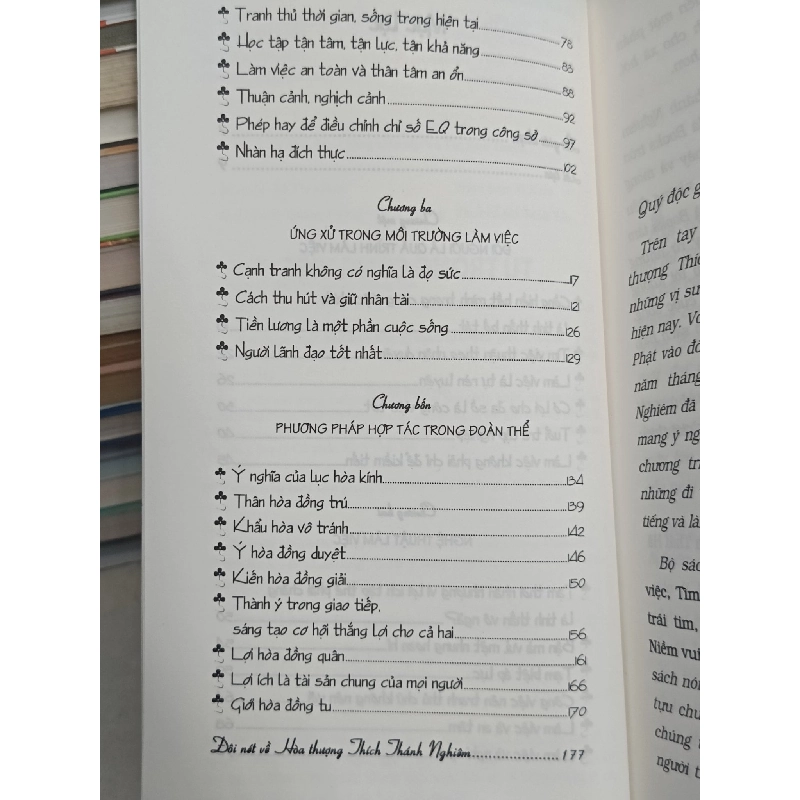 Tranh thủ thời gian, sống trong hiện tại 78
Học tập tận tâm, tận lực, tận khả năng 83
Làm việc an toàn và thân tâm an ổn 88
Thuận cảnh, nghịch cảnh 92
Phép hay để điều chỉnh chỉ số EQ trong công sở 97
Nhàn hạ đích thực 102
Chương ba
ỨNG XỬ TRONG MÔI TRƯỜNG LÀM VIỆC
Cạnh tranh không có nghĩa là đọ sức 117
Cách thu hút và giữ nhân tài 121
Tiền lương là một phần cuộc sống 126
Người lãnh đạo tốt nhất 129
Chương bốn
PHƯƠNG PHÁP HỢP TÁC TRONG ĐOÀN THỂ
Ý nghĩa của lục hòa kính 134
Thân hòa đồng trú 139
Khẩu hòa vô tránh 142
Ý hòa đồng duyệt 146
Kiến hòa đồng giải 150
Thành ý trong giao tiếp,
sáng tạo cơ hội thắng lợi cho cả hai 156
Lợi hòa đồng quân 161
Lợi ích là tài sản chung của mọi người 166
Giới hòa đồng tu 170
Đôi nét về Hòa thượng Thích Thánh Nghiêm 177
Quý độc g
Trên tay
thượng Thi
những vị su
hiện nay. Vớ
Phật vào đờ
năm tháng
Nghiêm đã
mang ý ng
chương tr
những đi
tiếng và là
Bộ sác
việc, Tìm
trái tim,
Niềm vui
sách nói
tựu chu
chúng
người t